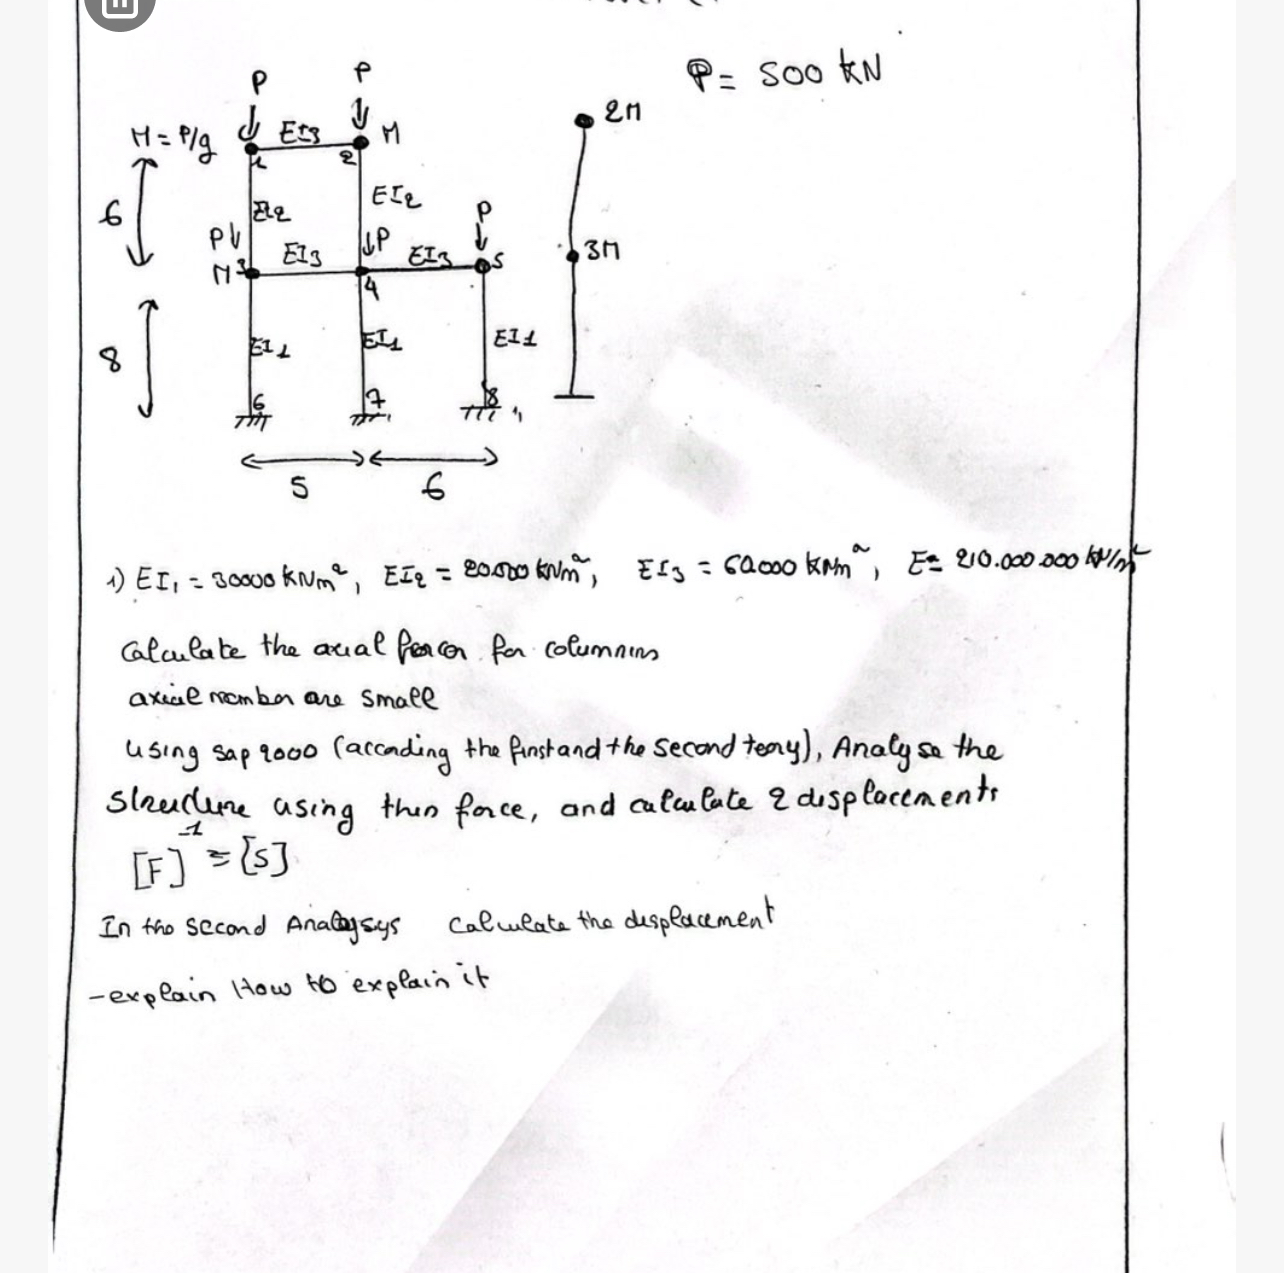 P P P = 500 kN
M = P/g EI3 M 2M
1 2
6 EI2 EI2 P
P P
EI3 EI3 5 3M
M 3 4
8 EI1 EI1 EI1
6 7 8
5 6
1) EI1 = 30000 kNm², EI2 = 20000 kNm², EI3 = 60000 kNm², E= 210.000.000 kN/m²
Calculate the axial for columnns
axial are small
using sap 2000 (accnding the finst and the second teory), Analyse the
using this force, and calculate 2 displacements
[F]⁻¹ = [S]
In the second Analysys Calculate the displacement
-explain How to explain it